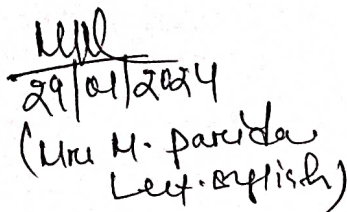 29/01/2024
(Mrs M. Parida
Lect. English)